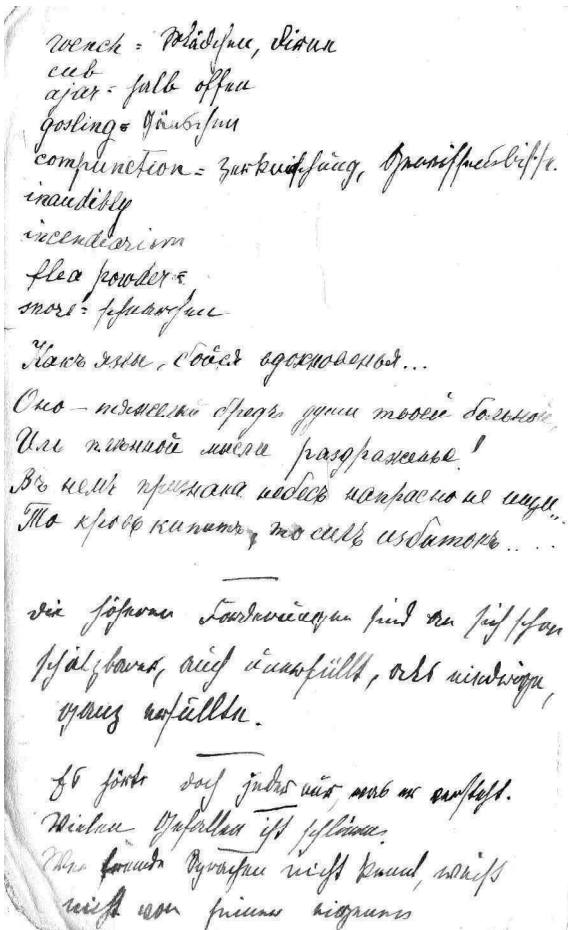 wench = Mädchen, Dirne
cub
ajar = halb offen
gosling = Gänschen
compunction = Zerknirschung, Gewissensbisse.
inaudibly
incendiarism
flea powder =
snore = schnarchen
Какъ язвы, бойся вдохновенья...
Оно – тяжелый бредъ души твоей больной,
Иль плѣнной мысли раздраженье!
Въ немъ признака небесъ напрасно не ищи..
То кровь кипитъ, то силъ избытокъ.....
die höheren Forderungen sind an sich schon
schätzbarer, auch unerfüllt, als niedrige,
ganz erfüllte.
Es hört doch jeder nur, was er versteht.
Vielen gefallen ist schlimm.
Wer fremde Sprachen nicht kennt, weiß
nichts von seiner eigenen